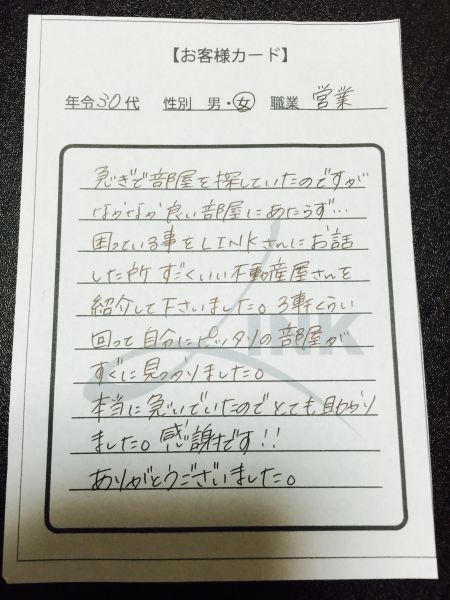 【お客様カード】
年令 30代 性別 男・女 職業 営業
急ぎで部屋を探していたのですが
なかなか良い部屋にあたらず…
困っている事をLINKさんにお話
した所すごくいい不動産屋さんを
紹介して下さいました。3軒くらい
回って自分にピッタリの部屋が
すぐに見つかりました。
本当に急いでいたのでとても助かり
ました。感謝です!!
ありがとうございました。
LINK